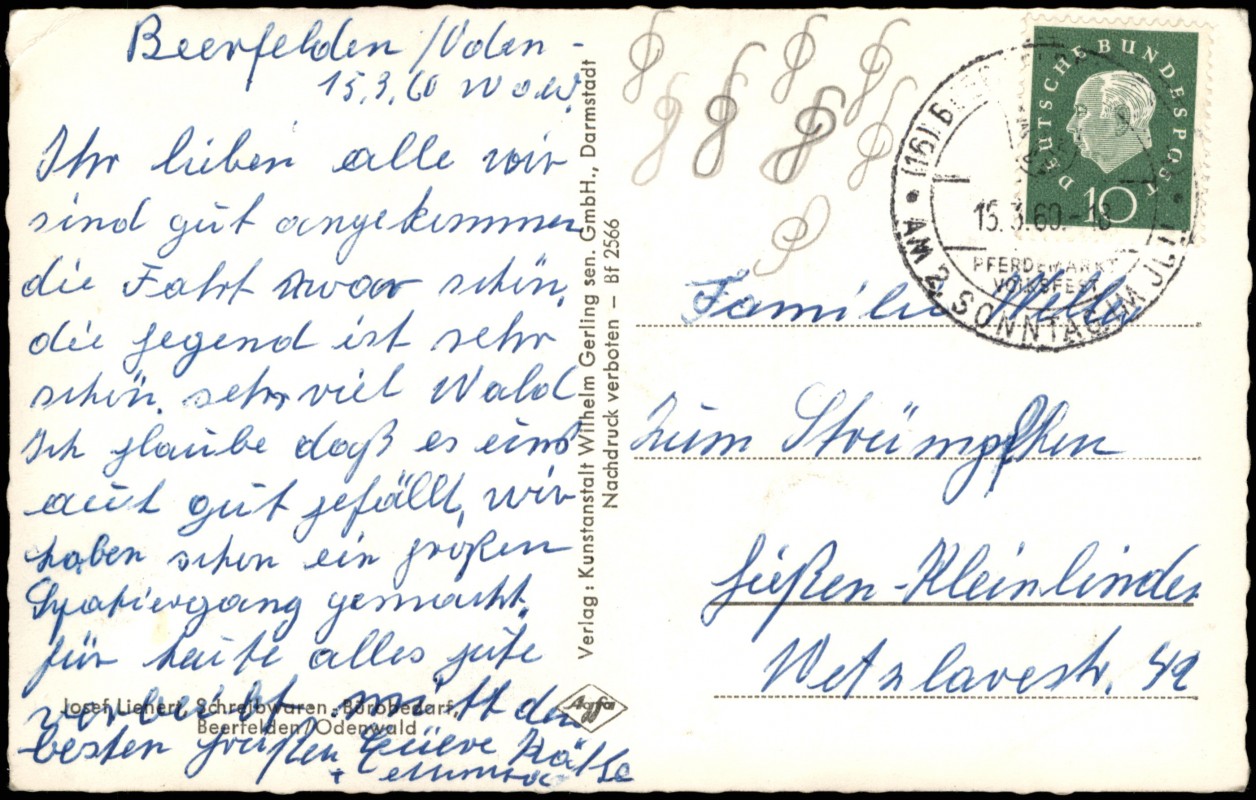 Beerfelden /Oden-
15.3.60 Wald.
Ihr lieben alle wir
sind gut angekommen
die Fahrt zwar schön,
die gegend ist sehr
schön. sehr viel Wald
Ich glaube daß es eins
auch gut gefällt, wir
haben schon ein großen
Spatiergang gemacht.
für heute alles gute
verbeibt mitt den
besten grüßen Eüere Käthe
+
Josef Lienert, Schreibwaren, Bürobedarf,
Beerfelden/Odenwald
Agfa
Verlag: Kunstanstalt Wilhelm Gerling sen. GmbH., Darmstadt
Nachdruck verboten — Bf 2566
DEUTSCHE BUNDESPOST
10
(16)
15.3.60.-18
PFERDEMARKT
VOLKSFEST
AM 2. SONNTAG IM JULI
Familie
zum Strümpfhen
Gießen-Kleinlinden
Wetzlarestr. 42